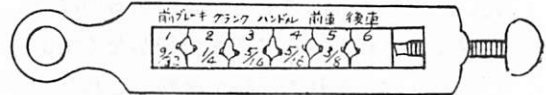 前ブレーキ クランク ハンドル 前車 後車
1 2 3 4 5 6
9/32 1/4 5/16 5/16 3/8